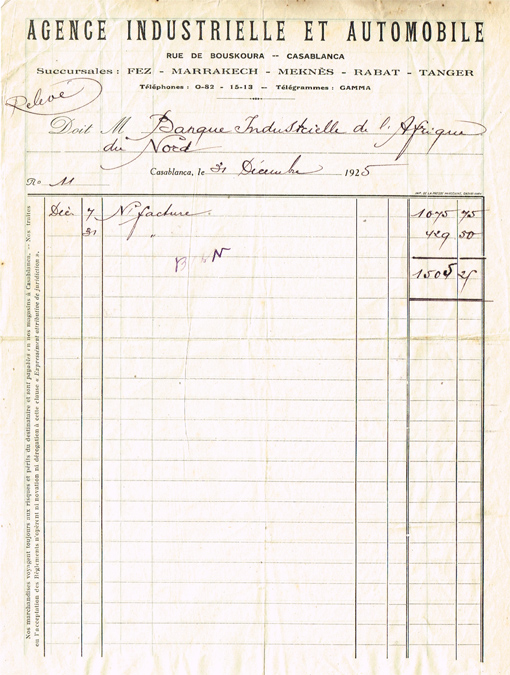 AGENCE INDUSTRIELLE ET AUTOMOBILE
RUE DE BOUSKOURA -- CASABLANCA
Succursales : FEZ - MARRAKECH - MEKNÈS - RABAT - TANGER
Téléphones : 0-82 - 15-13 -- Télégrammes : GAMMA
Relevé
Doit M Banque Industrielle de l'Afrique
du Nord
Casablanca, le 31 Décembre 1925
Ro 11
Déc. 7 N/ facture 1075 75
31 " 429 50
1505 25
Nos marchandises voyagent toujours aux risques et périls du destinataire et sont payables en nos magasins à Casablanca. — Nos traites
ou l'acceptation des Règlements n'opèrent ni novation ni dérogation à cette clause « Expressément attributive de juridiction ».